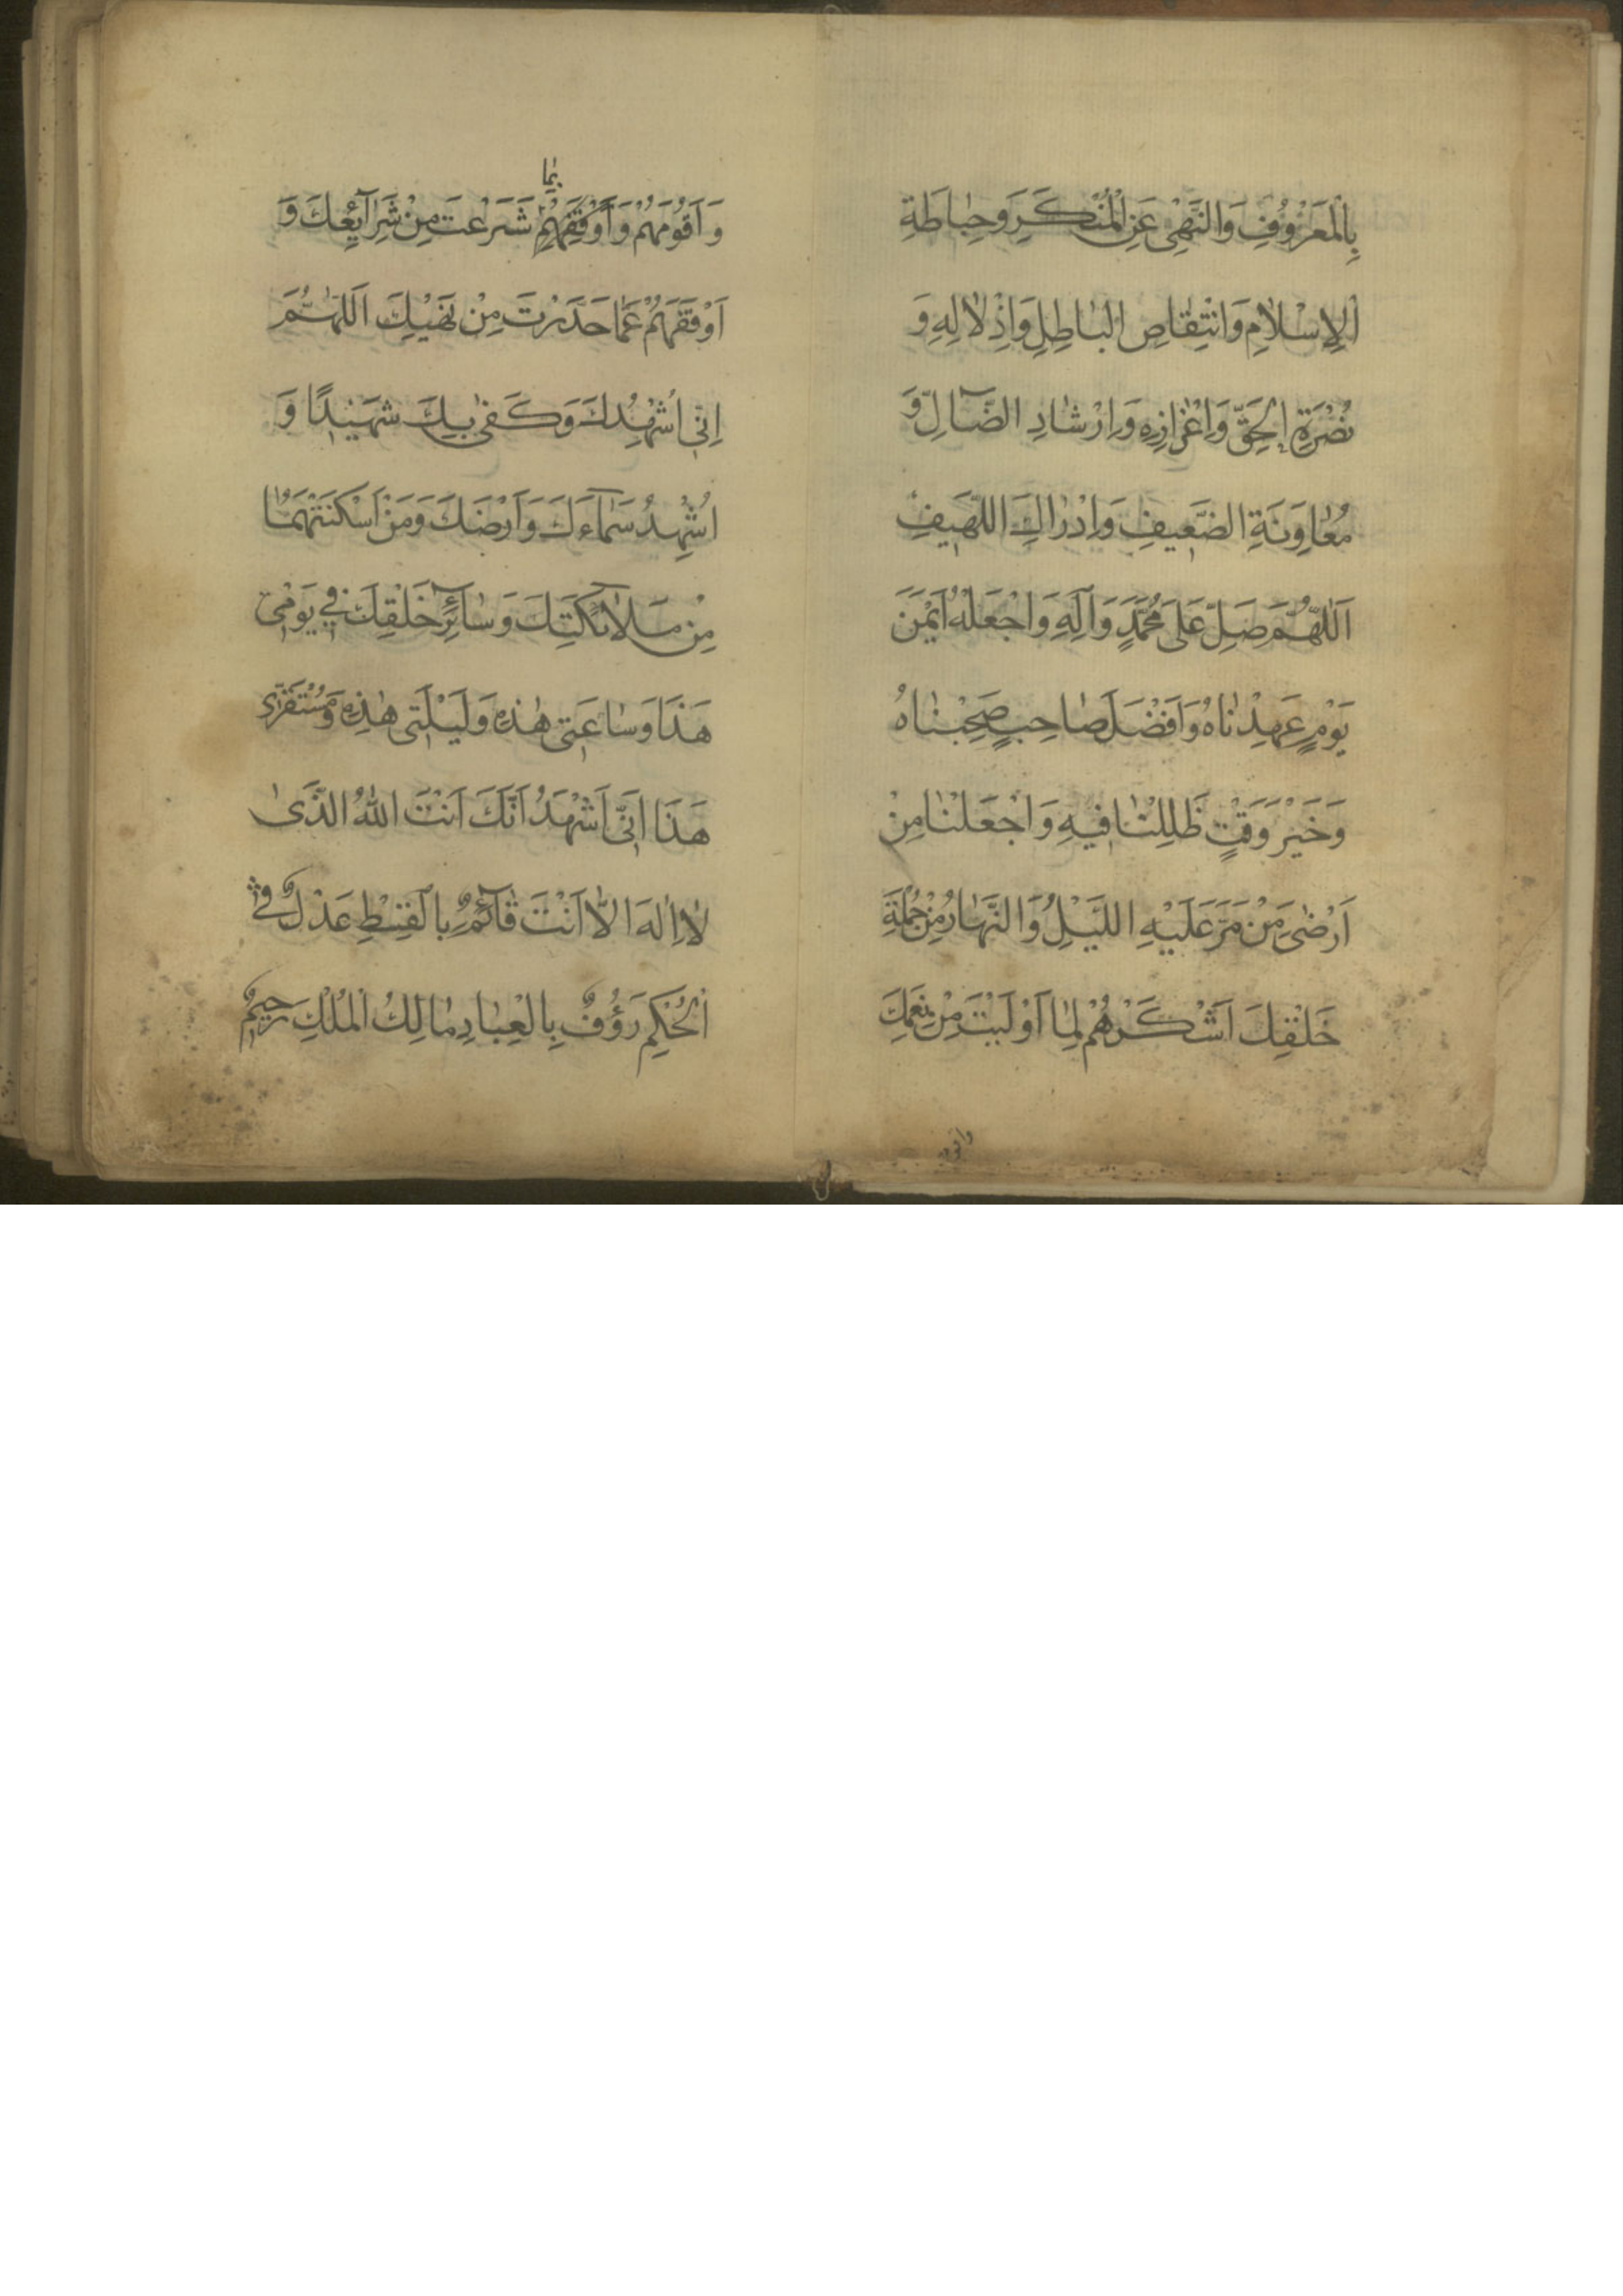 بِالْمَعْرُوفِ وَالنَّهْيِ عَنِ الْمُنْكَرِ وَحِيَاطَةِ
الْإِسْلَامِ وَانْتِقَاصِ الْبَاطِلِ وَإِذْلَالِهِ وَ
نُصْرَةِ الْحَقِّ وَاِعْزَازِهِ وَاِرْشَادِ الضَّآلِّ وَ
مُعَاوَنَةِ الضَّعِيفِ وَاِدْرَاكِ اللَّهِيفِ
اَللّٰهُمَّ صَلِّ عَلَى مُحَمَّدٍ وَآلِهِ وَاجْعَلْهُ اَيْمَنَ
يَوْمٍ عَهِدْنَاهُ وَاَفْضَلَ صَاحِبٍ صَحِبْنَاهُ
وَخَيْرَ وَقْتٍ ظَلِلْنَا فِيهِ وَاجْعَلْنَا مِنْ
اَرْضَى مَنْ مَرَّ عَلَيْهِ اللَّيْلُ وَالنَّهَارُ مِنْ جُمْلَةِ
خَلْقِكَ اَشْكَرَهُمْ لِمَا اَوْلَيْتَ مِنْ نِعَمِكَ
وَاَقْوَمَهُمْ وَاَوْقَفَهُمْ بِمَا شَرَعْتَ مِنْ شَرَآيِعِكَ وَ
اَوْقَفَهُمْ عَمَّا حَذَّرْتَ مِنْ نَهْيِكَ اَللّٰهُمَّ
اِنِّي اُشْهِدُكَ وَكَفٰى بِكَ شَهِيدًا وَ
اُشْهِدُ سَمَآءَكَ وَاَرْضَكَ وَمَنْ اَسْكَنْتَهُمَا
مِنْ مَلَائِكَتِكَ وَسَآئِرِ خَلْقِكَ فِي يَوْمِي
هَذَا وَسَاعَتِي هٰذِهِ وَلَيْلَتِي هٰذِهِ وَمُسْتَقَرِّي
هَذَا اَنِّي اَشْهَدُ اَنَّكَ اَنْتَ اللهُ الَّذِى
لَا اِلٰهَ اِلَّا اَنْتَ قَآئِمٌ بِالْقِسْطِ عَدْلٌ فِي
الْحُكْمِ رَؤُفٌ بِالْعِبَادِ مَالِكُ الْمُلْكِ رَحِيمٌ